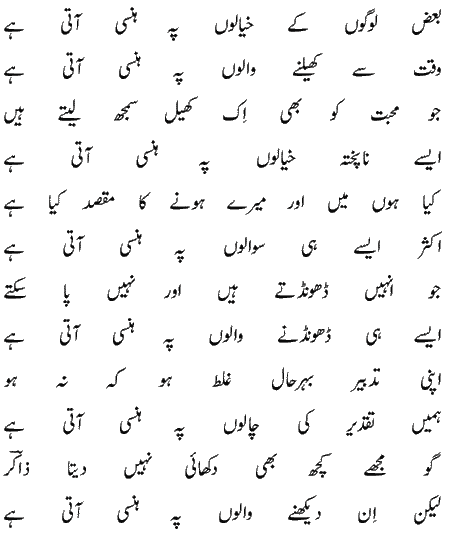 بعض لوگوں کے خیالوں پہ ہنسی آتی ہے
وقت سے کھیلنے والوں پہ ہنسی آتی ہے
جو محبت کو بھی اِک کھیل سمجھ لیتے ہیں
ایسے ناپختہ خیالوں پہ ہنسی آتی ہے
کیا ہوں میں اور میرے ہونے کا مقصد کیا ہے
اکثر ایسے ہی سوالوں پہ ہنسی آتی ہے
جو انہیں ڈھونڈتے ہیں اور نہیں پا سکتے
ایسے ہی ڈھونڈنے والوں پہ ہنسی آتی ہے
اپنی تدبیر بہرحال غلط ہو کہ نہ ہو
ہمیں تقدیر کی چالوں پہ ہنسی آتی ہے
گو مجھے کچھ بھی دکھائی نہیں دیتا ذاکرؔ
لیکن اِن دیکھنے والوں پہ ہنسی آتی ہے